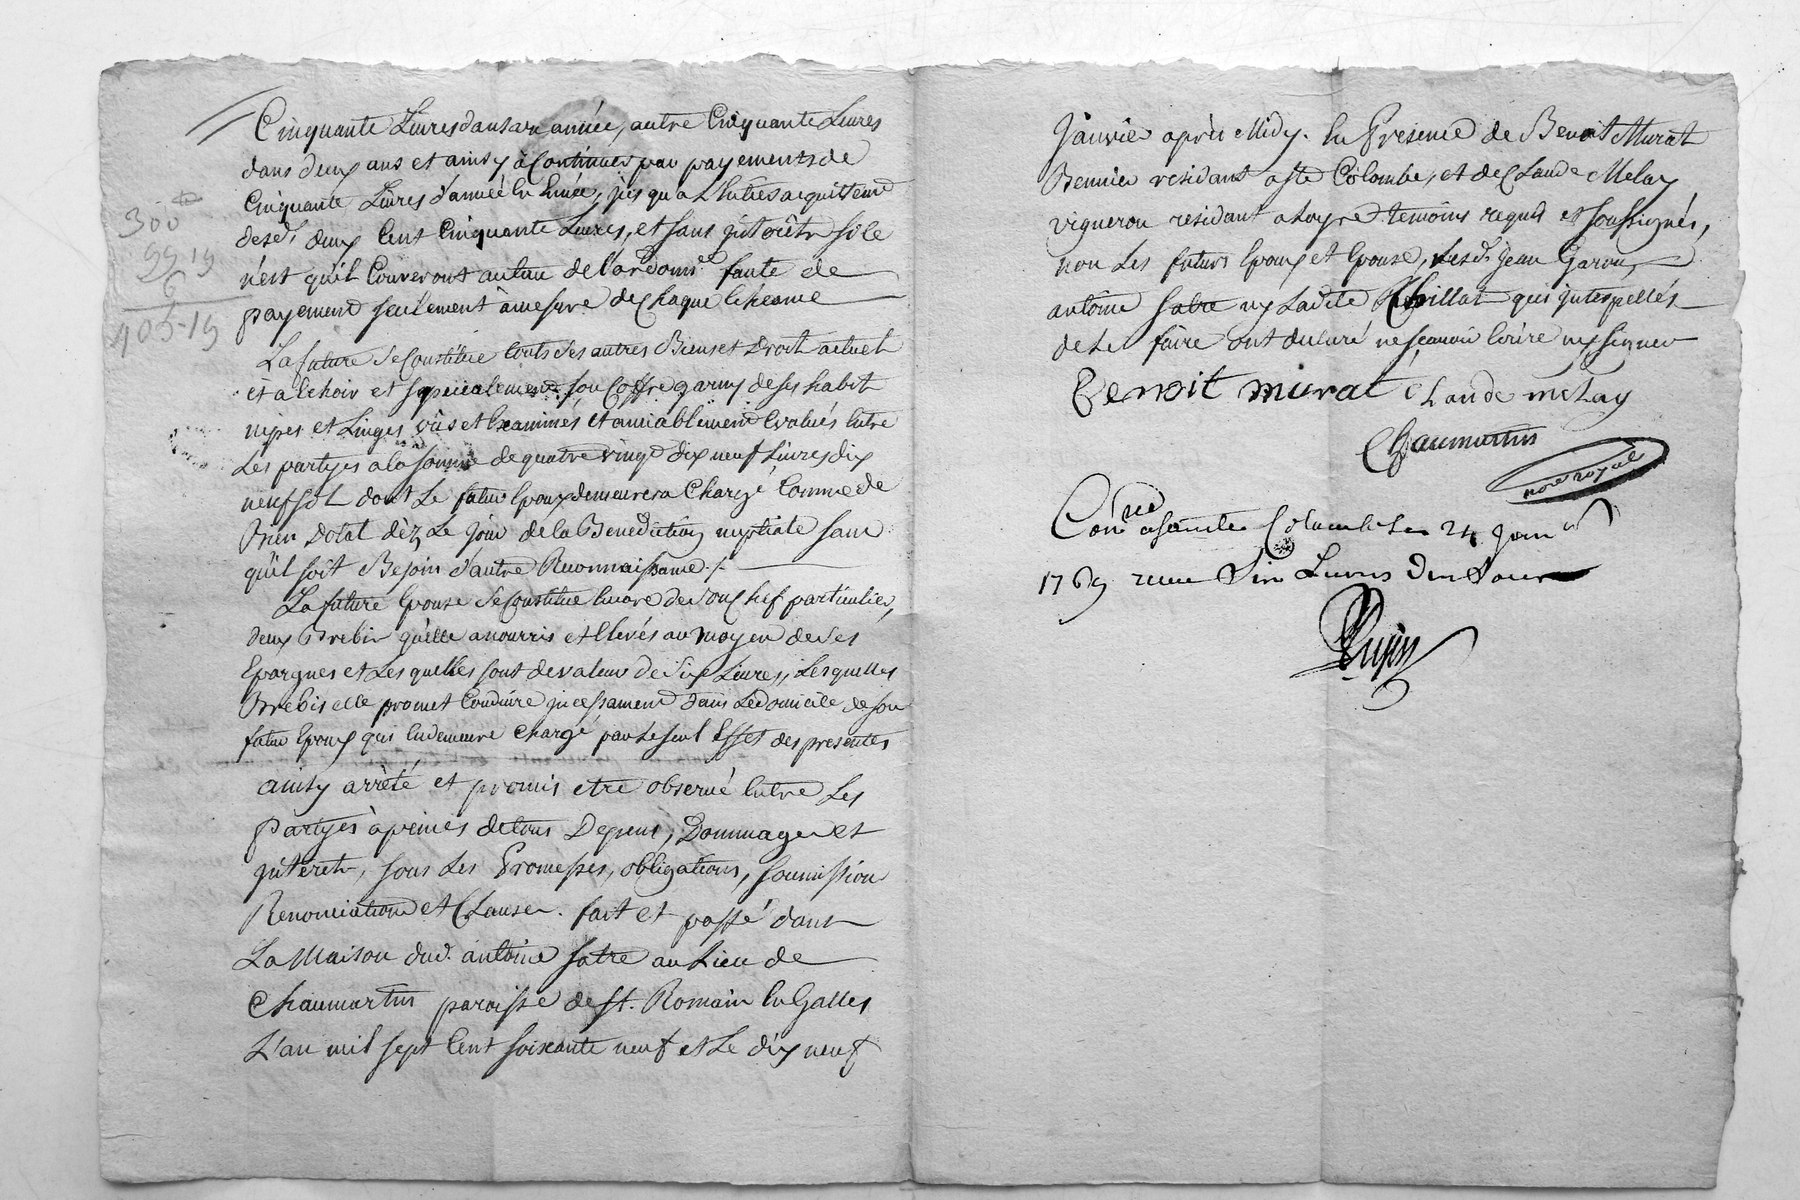 Cinquante Livres dans un année, autre Cinquante Livres
dans deux ans et ainsy à Continuer par payements de
Cinquante Livres d'année en année, jusqu'a L'entier acquittement
desd. deux Cent Cinquante Livres, et sans interêtz si ce
n'est qu'il Couveront au taux de l'ordonn.ce faute de
payement seulement à mesure de chaque Echéance
La future Se Constitüe touts Ses autres Biens et Droits actuels
et a Echoir et spécialement son Coffre garny de ses habits
nipes et Linges vüs et Examinés et amiablement Evalués Entre
Les partyes a la somme de quatre vingt dix neuf Livres dix
neuf sol dont Le futur Epoux demeurera Chargé Comme de
Bien Dotal dèz Le jour de la Bénédiction nuptiale sans
qu'il soit Besoin d'autre Reconnaissance ./.
La future Epouse Se Constitüe Encore de son Chef particulier,
deux Brebis qu'elle a nourris et Elevés au moyen de Ses
Epargnes et Les quelles sont de valeur de Six Livres, Lesquelles
Brebis elle promet Conduire incessament dans Le domicile de son
futur Epoux qui En demeure Chargé par Le seul Effet des presentes
ainsy arrêté et promis etre observé Entre Les
Partyes à peines de tous Depens, Dommages et
interets, sous Les Promesses, obligations, soumission
Renonciation et Clauses. fait et passé dans
La Maison dud. antoine fatre au Lieu de
Chaumartin paroisse de St. Romain En Galles
L'an mil sept Cent soixante neuf et Le dix neuf
300
99 19
6
405-19
Janvier après Midy. En Présence de Benoit Murat
Bennier residant a Ste Colombe, et de Claude Melay
vigneron residant a Loyre temoins requis et soussignés,
non Les futurs Epoux et Epouse, Lesd. jean Garon,
antoine fatre ny Ladite qui interpellés
de Le faire ont declaré ne sçavoir Ecrire ny signer
Benoit murat Claude meLay
Chaumartin
nore royal
Con.lé a Sainte Colombe Le 24 Janv.er
1769 receu Six Livres Dix Sous